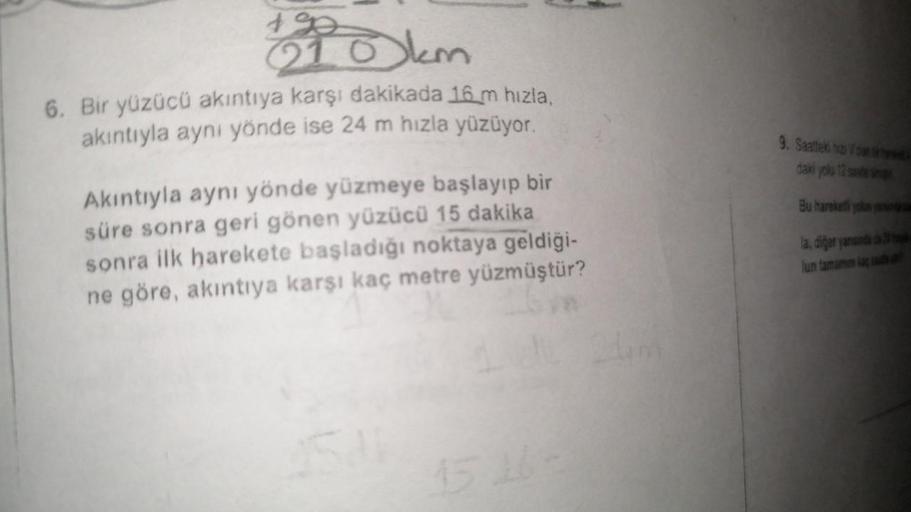 +90
210 km
6. Bir yüzücü akıntıya karşı dakikada 16 m hızla,
akıntıyla aynı yönde ise 24 m hızla yüzüyor.
Akıntıyla aynı yönde yüzmeye başlayıp bir
süre sonra geri gönen yüzücü 15 dakika
sonra ilk harekete başladığı noktaya geldiği-
ne göre, akıntıya karşı kaç metre yüzmüştür?
16m
15 16=
9. Saatteki hızı V olan bir
daki yolu 12 saatte
Bu hareketli yolun
la, diğer yarısında da
lun tamamını kaç saatte